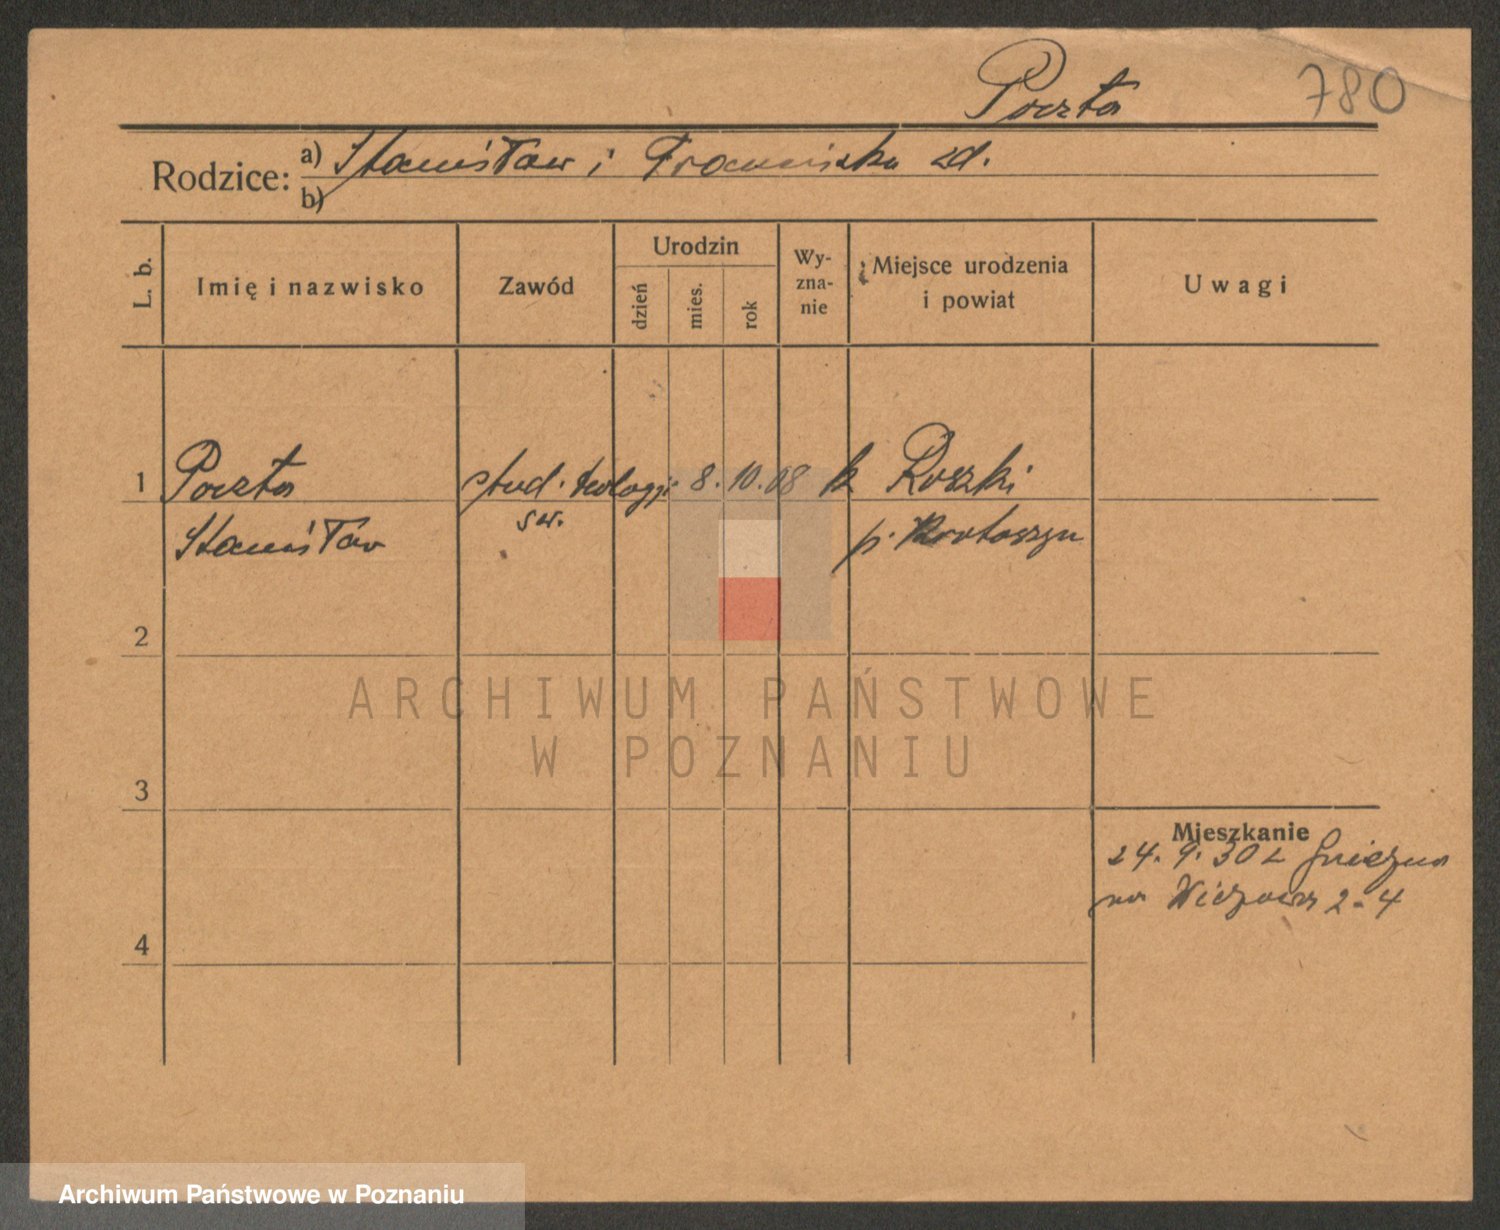 Poczta 780
Rodzice: a) Stanisław i Franciszka zd.
b)
L. b. Imię i nazwisko Zawód Urodzin dzień mies. rok Wyznanie Miejsce urodzenia i powiat Uwagi
1 Poczta stud. teologji 8. 10. 08 k Roszki
Stanisław św. p. Krotoszyn
2
ARCHIWUM PAŃSTWOWE
W POZNANIU
3
Mieszkanie
24. 9. 30 z Gniezna
na Wieżowa 2-4
4
Archiwum Państwowe w Poznaniu